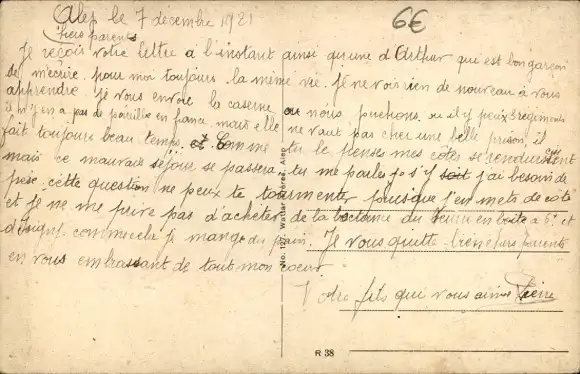 Alep le 7 décembre 1921
6€
chers parents
Je reçois votre lettre à l'instant ainsi qu'une d'Arthur qui est bon garçon
de m'écrire, pour moi toujours la même vie. Je ne vois rien de nouveau à vous
apprendre. Je vous envoie la caserne ou nous perchons, ou il y a 3 régiments
il n'y en a pas de pareille en france, mais elle ne vaut pas cher une belle prison, il
fait toujours beau temps, Comme tu le penses mes côtes se renduicissent
mais ce mauvais séjour se passera, tu me parles si j'ai besoin de
pèse cette question ne peux te tourmenter puisque j'en mets de côté
et je ne me prive pas d'acheter de la du beurre en boîte à 6f et
comme cela je mange du pain. Je vous quitte biens chers parents
en vous embrassant de tout mon coeur
Votre fils qui vous aime Pierre
R 38